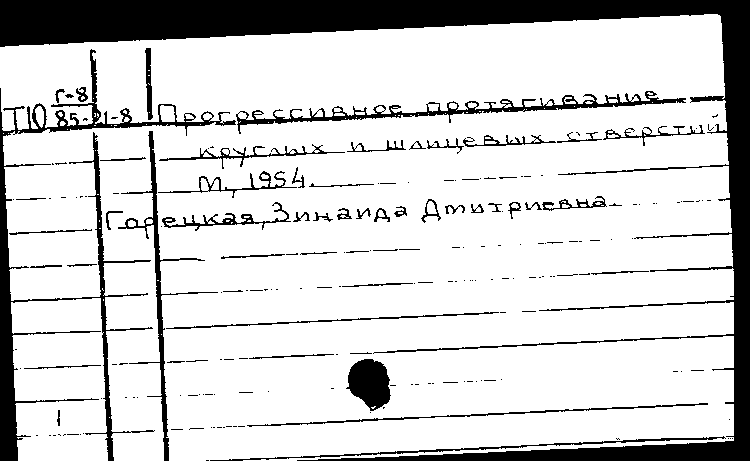 Г-8
Т10 85-21-8 Прогрессивное протягивание
круглых и шлицевых отверстий
М., 1954.
Горецкая, Зинаида Дмитриевна.
1